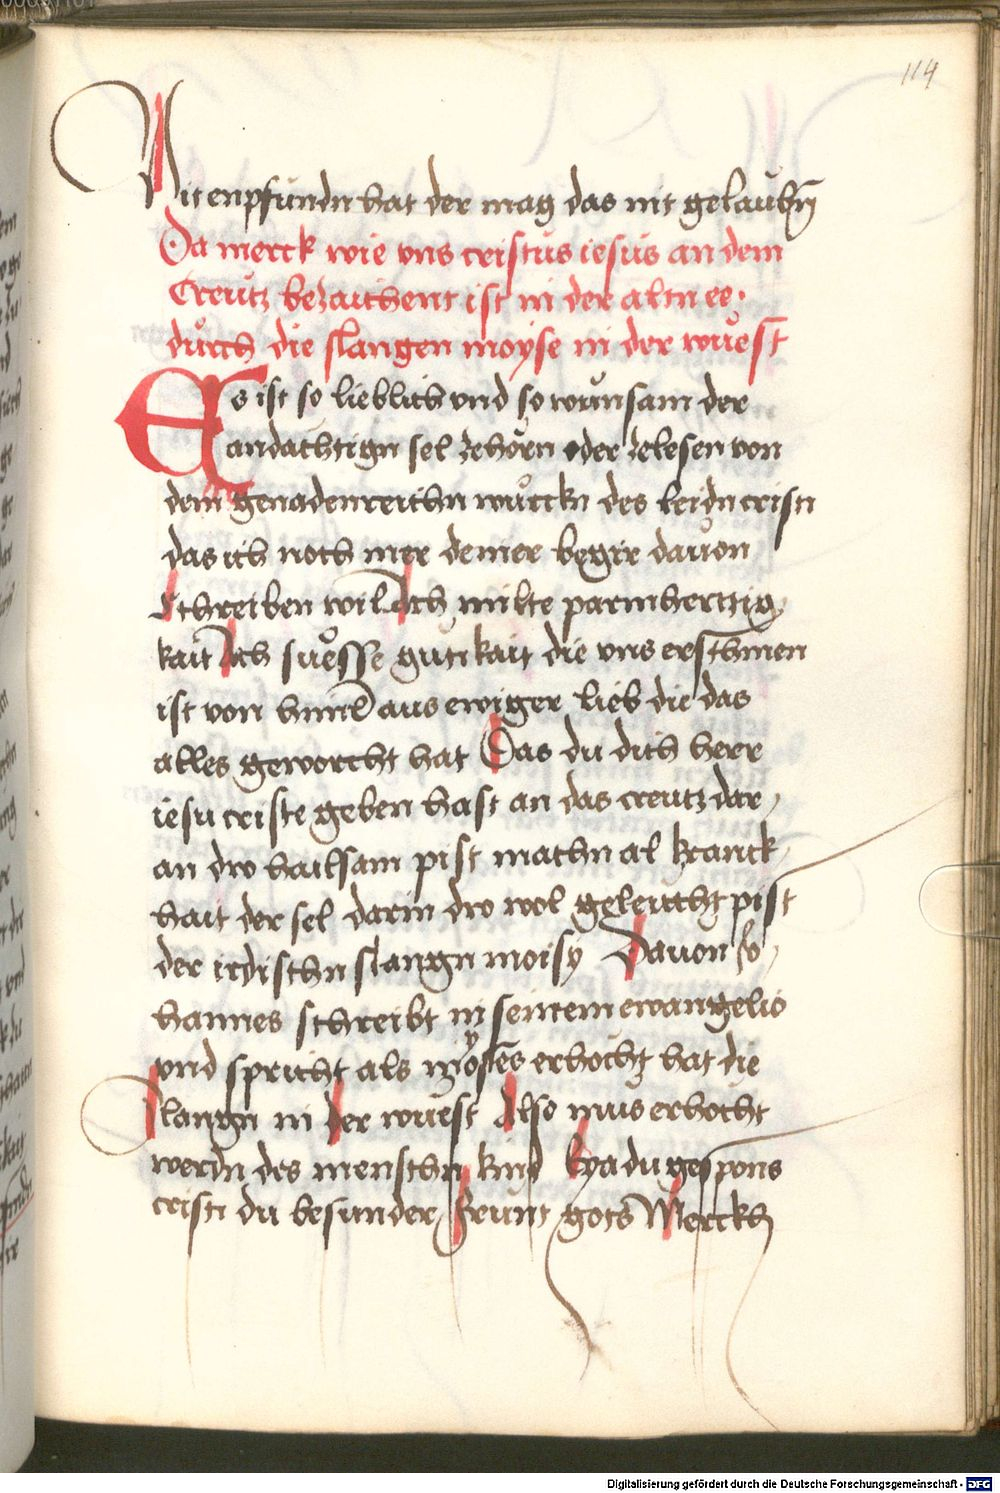 114
Nit enpfundn hat der mag das nit gelaubn̄
Da merck wie vns cristus iesus an dem
Creutz bezaichent ist in der altn ee·
durch die slangen moyse in der wuest
Es ist so lieblich vnd so wunsam der
andachtign sel zehorn oder zelesen von
dem genadenreichn wurckn des leidn cristi
das ich noch mer deiner begir dauon
schreiben wil Ach milte parmhertzig
kait Ach suesse gutikait die vns erschinen
ist von himel aus ewiger lieb die das
alles geworcht hat Das du dich herr
iesu criste geben hast an das creutz dar
an dw hailsam pist machn al kranck
hait der sel darin dw wol geleucht pist
der irdischn slangn moisy Dauon Jo
hannes schreibt in seinem ewangelio
vnd spricht als moyses erhocht hat die
slangn in der wuest Also mus erhocht
werdn des menschn kind Eya du gespons
cristi du besunder frunt gots Merckh
Digitalisierung gefördert durch die Deutsche Forschungsgemeinschaft - DFG